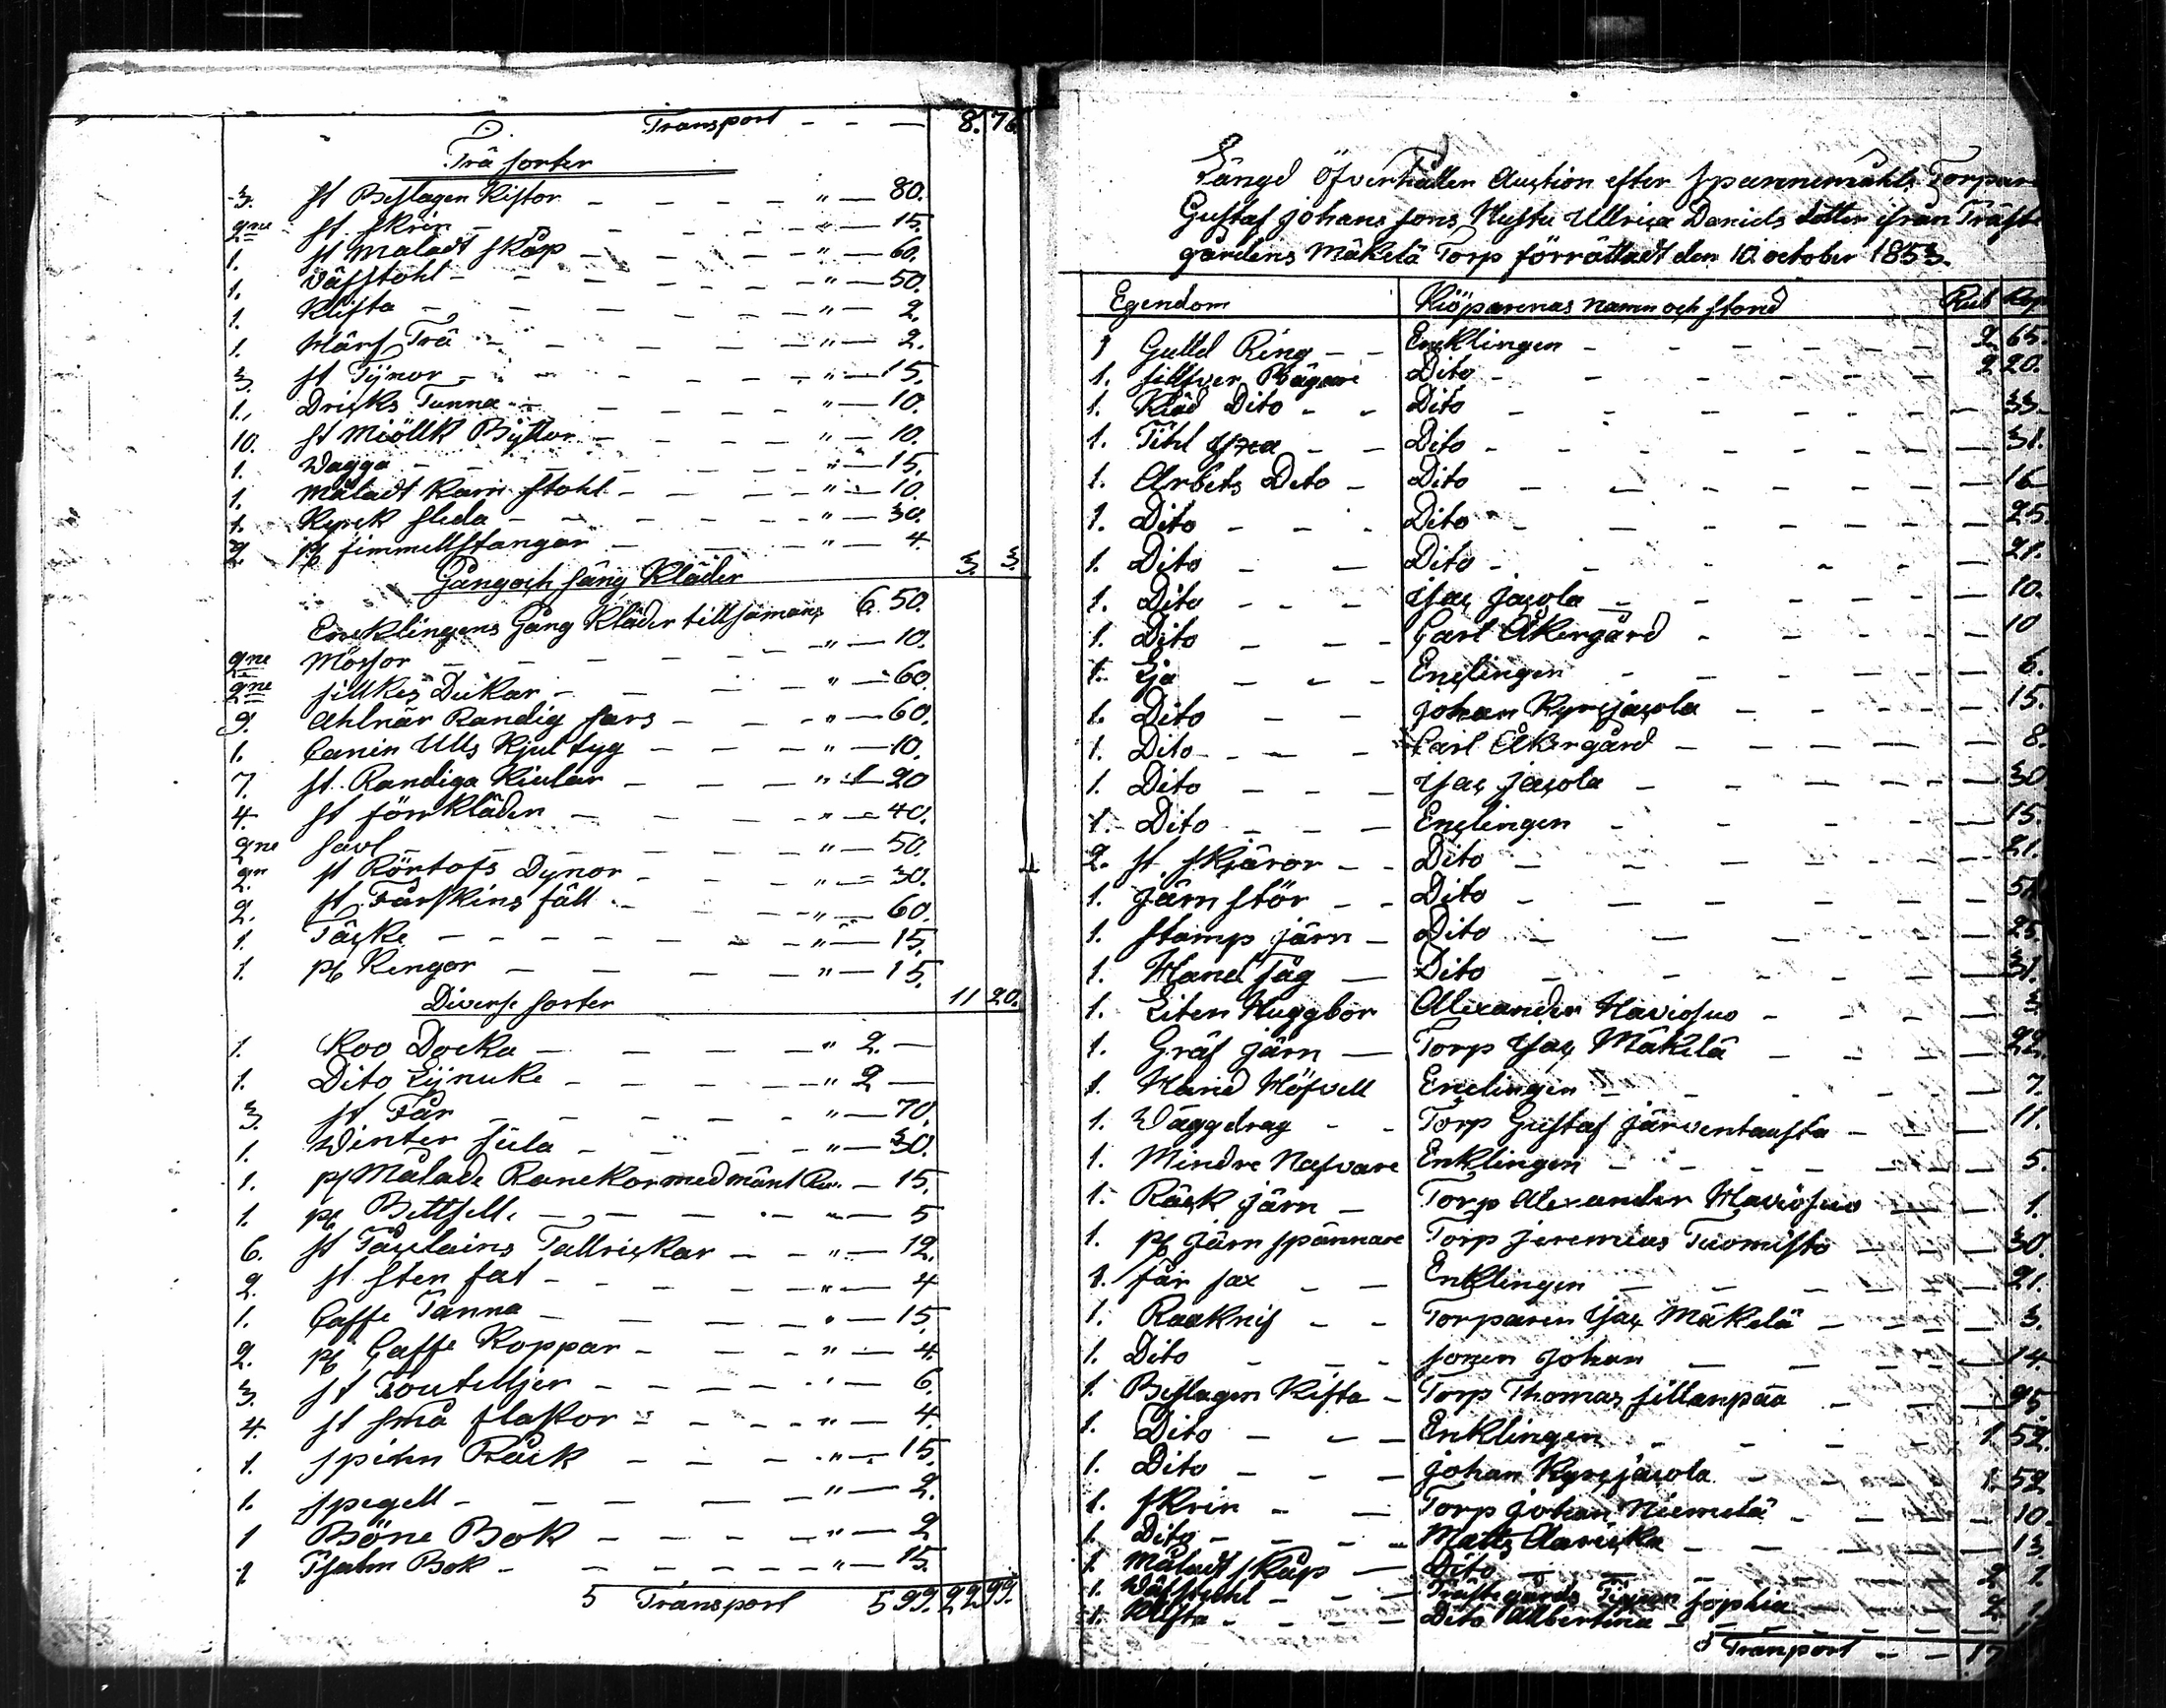 Transport - - - 8. 76.
Trä sorter
3. st Beslagen Kistor - - - - " - 80.
2ne st. skrin - - - - " - 15.
1. st Måladt skåp - - - - " - 60.
1. Väfstohl - - - - - " - 50.
1. Klifta - - - - - " - 2.
1. Härf Trä - - - - - " - 2.
3. st Tÿnor - - - - - " - 15.
1. Dricks Tunna - - - - - " - 10.
10. st Miöllk Byttor - - - - " - 10.
1. Wagga - - - - - " - 15.
1. Måladt Karm stohl - - - - " - 10.
1. Kyrck sleda - - - - - " - 30.
2. pr fimmellstangar - - - " - 4. 3. 3.
Gång och säng Kläder
Encklingens Gång Kläder tillsamans 6. 50.
2ne Mössor - - - - - " - 10.
2ne sillkes Dukar - - - - " - 60.
9. Ahlnär Randig sars - - - " - 60.
1. Canin Ulls Kjul tyg - - - " - 10.
7. st. Randiga Kiolar - - - " 1 20
4. st förkläden - - - - " - 40.
2ne savl - - - - - " - 50.
2. st Röntofs Dynor - - - " - 30.
2. st Fårskins fäll - - - " - 60.
1. Täcke - - - - - " - 15.
1. pr Kengor - - - - " - 15.
Diverse sorter 11 20.
1. Koo Docka - - - - " 2. -
1. Dito Lijnuke - - - - " 2 -
3. st Får - - - - - " - 70.
1. Winter sula - - - - " - 30.
1. pr Målade Kanekor med mänt - 15.
1. pr Bettsell. - - - - " - 5
6. st Påselains Tallrickar - - " - 12.
2. st sten fat - - - - " - 4
1. Caffe Panna - - - - " - 15.
2. pr Caffe Koppar - - - " - 4.
3. st Boutelljer - - - - " - 6.
4. st små flaskor - - - - " - 4.
1. spinn Råck - - - - " - 15.
1. spegell - - - - - " - 2.
1 Böne Bok - - - - " - 2
1 Psalm Bok - - - - - " - 15.
5 Transport 5 99. 22 99.
Längd Öfverhållen Auction efter Spannemåhls Torparen
Gustaf Johanssons Hustu Ullrica Daniels dotter ifrån Präste
gårdens Mäkelä Torp förrättadt den 10 october 1853.
Egendom Kiöparenas namn och stond Rub Kop
1 Gulld Ring - - Encklingen - - - - 2 65.
1. sillfver Bägare Dito - - - - 2 20.
1. Kläd Dito - - Dito - - - - 33.
1. Tihl yxa - - Dito - - - - 31.
1. Arbets Dito - Dito - - - - 16
1. Dito - - - Dito - - - - 25.
1. Dito - - Dito - - - - 21.
1. Dito - - - Isac Jacola - - - 10.
1. Dito - - - Carl Åkergård - - - 10
1. Lja - - - Enclingen - - - 6.
1. Dito - - Johan Kyrcjacola - - - 15.
1. Dito - - - Carl Åkergård - - - 8.
1. Dito - - - Isac Jacola - - - 30
1. Dito - - Enclingen - - - 15.
2. st. skjäror - - Dito - - - 21.
1. Järn stör - - Dito - - - 51.
1. Stamp järn - Dito - - - 25.
1. Hand såg - Dito - - - 31.
1. Liten Huggbor Alexander Haviosuo - - - 3.
1. Gräf järn - Torp Isac Mäkelä - - - 22.
1. Hand Höfvell Enclingen - - - 7.
1. Wäggdrag - - Torp Gustaf Järventausta - - 11.
1. Mindre Nafvare Enklingen - - - 5.
1. Räck järn - Torp Alexander Haviosuo - - 1.
1. pr järn spännare Torp Jeremias Tuomisto - - 30.
1. får sax - - Enklingen - - - 21.
1. Raaknif - - Torparen Isac Mäkelä - - - 3.
1. Dito - - - sonen Johan - - - 14
1. Beslagen Kista - Torp Thomas sillanpää - - 95.
1. Dito - - - Enklingen - - - 1 52.
1. Dito - - - Johan Kyrcjacola - - 1. 52
1. skrin - - Torp Johan Niemelä - - - 10.
1. Dito - - - Matts Claricka - - - 13.
1. Måladt skåp - Dito - - - 2 1.
1. Wäfstuhl - - - Prästegårds Pigan Sophia - - 2 1.
1. Klifta - - - Dito Albertina - - - 1
5 Tranport - - 17